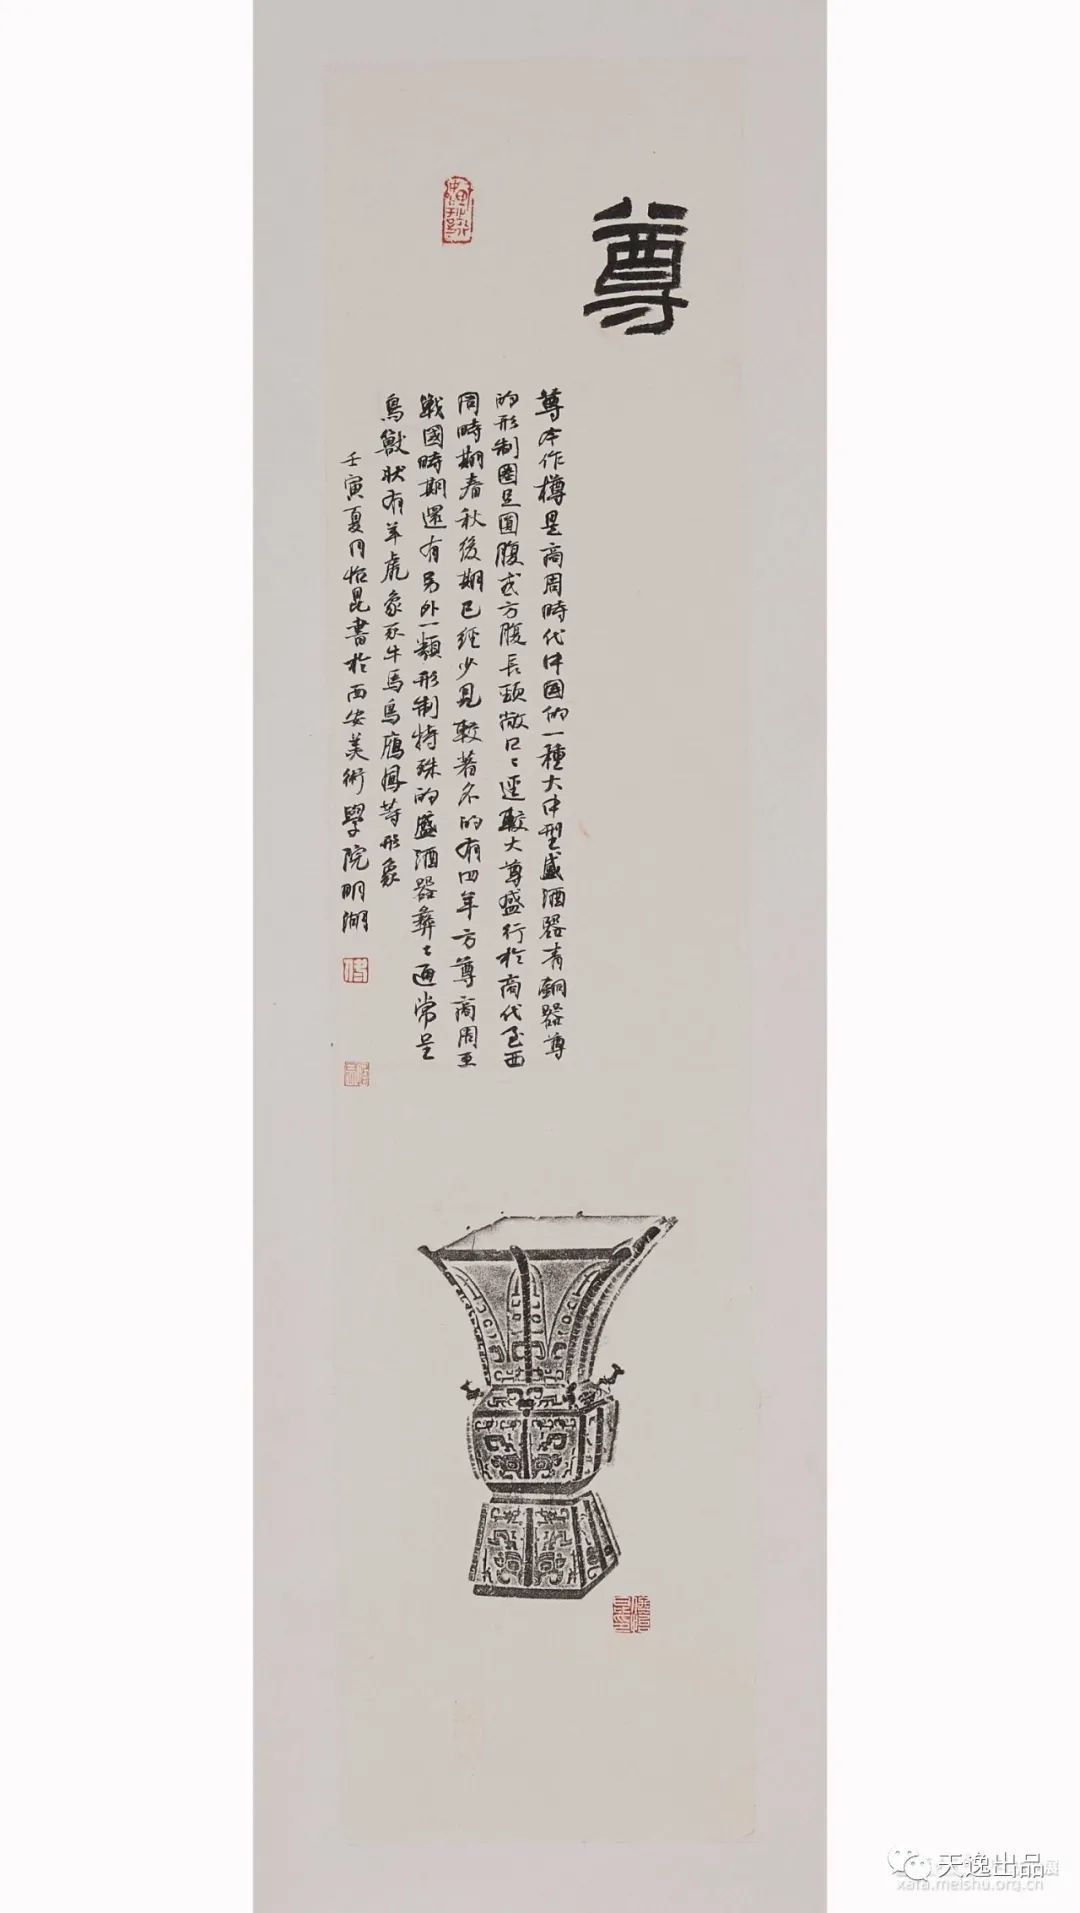 尊
尊本作樽是商周時代中国的一種大中型盛酒器青銅器尊
的形制圈足圓腹或方腹長頸敞口々逕較大尊盛行於商代至西
周時期春秋後期已經少見較著名的有四羊方尊商周至
戰國時期還有另外一類形制特殊的盛酒器彝々通常呈
鳥獸狀有羊虎象豕牛馬鳥鴈鳳等形象
壬寅夏月怡昆書於西安美術學院明湖
天逸出品
展
xafa.meishu.org.cn